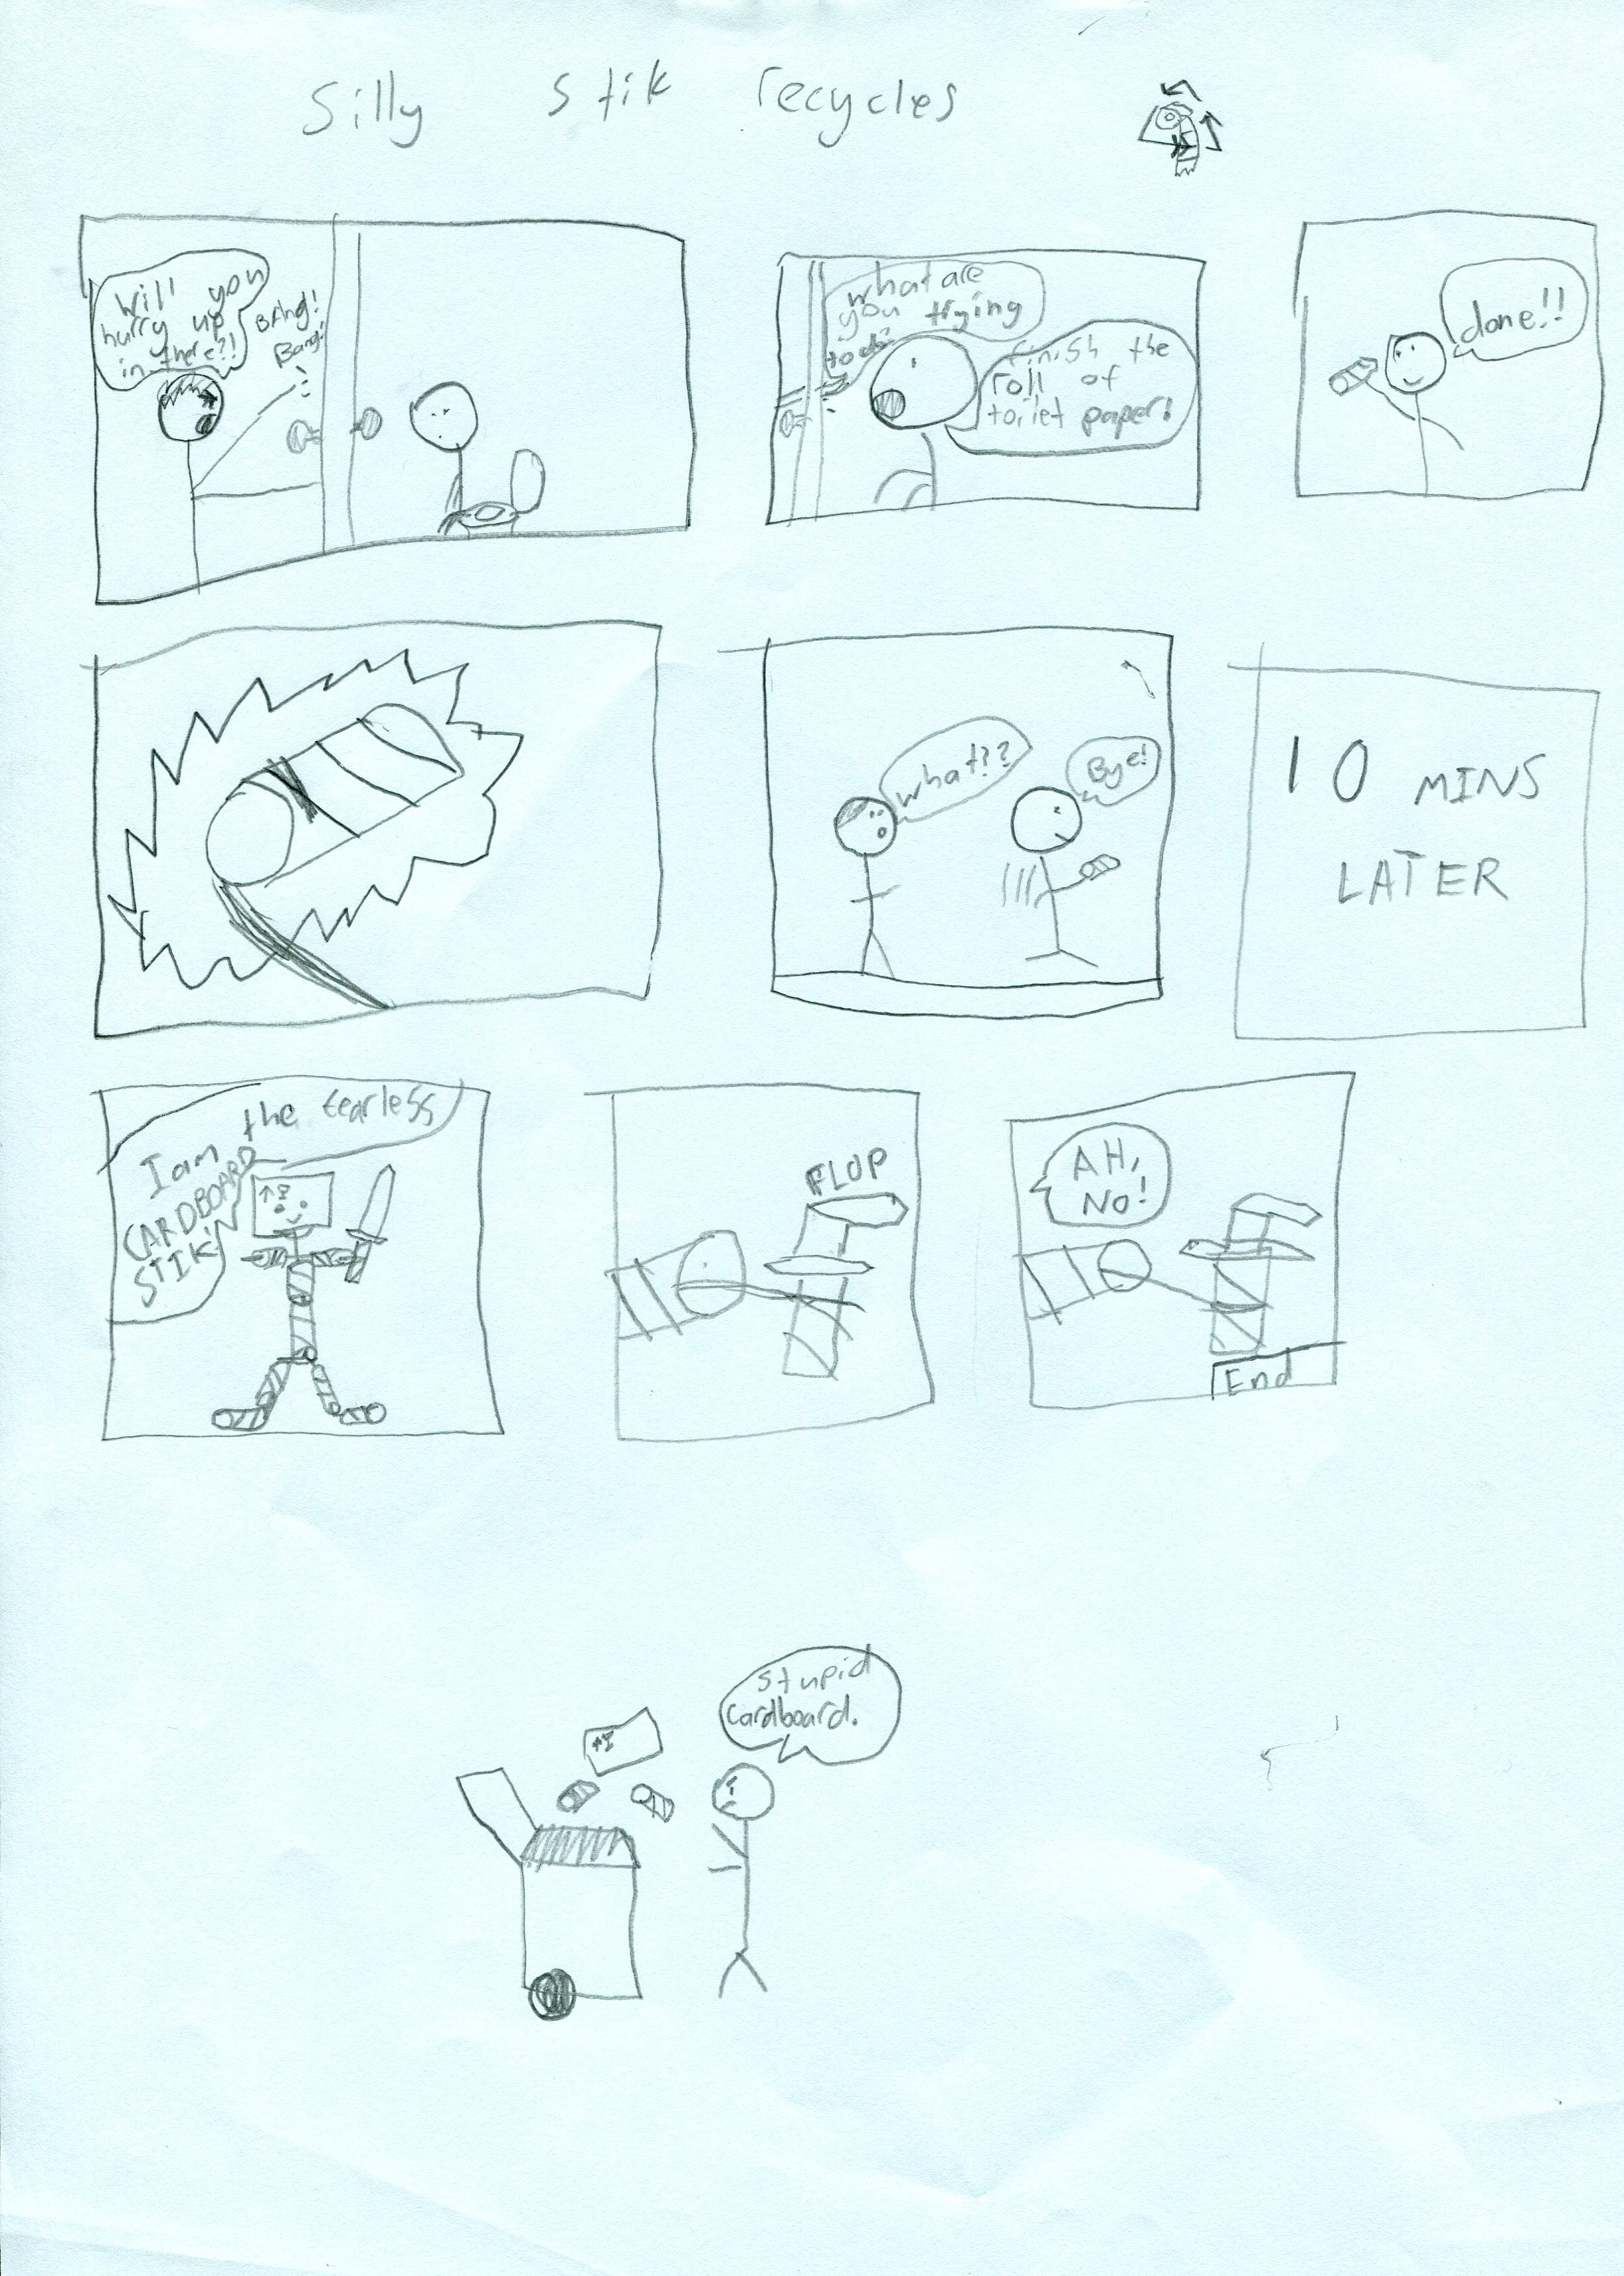 Silly stik recycles
Will you
hurry up
in there?!
BANg!
Bang!
what are
you trying
to do?
finish the
roll of
toilet paper!
done!!
what??
Bye!
10 MINS
LATER
I am the fearless
CARDBOARD
STIK!
FLOP
AH,
NO!
End
stupid
cardboard.